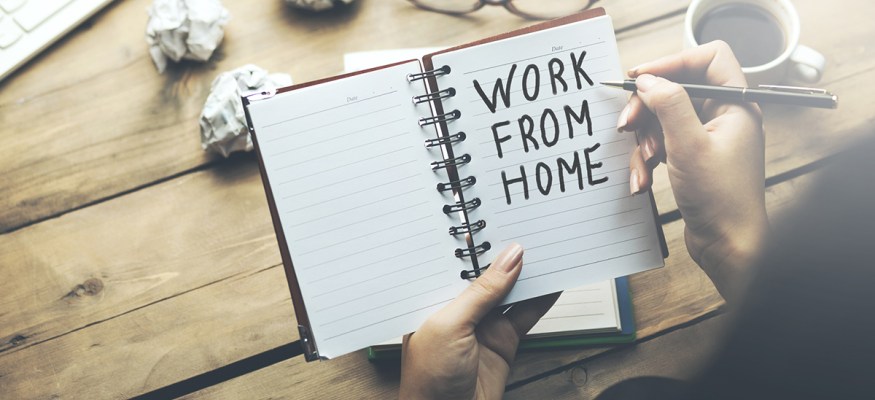 Date
Date
WORK
FROM
HOME